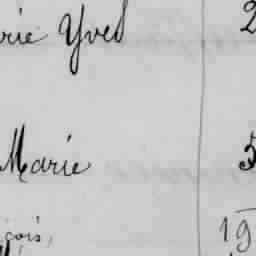 rie Yves 2
Marie 5
çois, 19